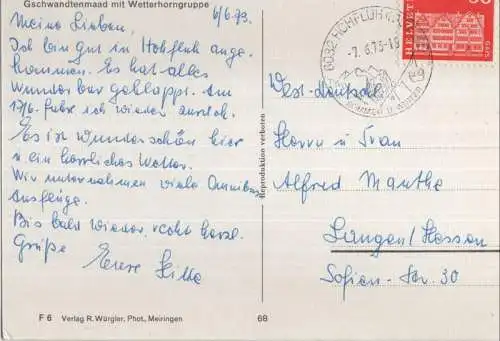 Gschwandtenmaad mit Wetterhorngruppe
6/6.73.
Meine Lieben,
Ich bin gut in Hohfluh ange-
kommen. Es hat alles
wunderbar geklappt. Am
17/6. fahre ich wieder zurück.
Es ist wunderschön hier
u. ein herrliches Wetter.
Wir unternehmen viele Omnibus
Ausflüge.
Bis bald wieder, recht herzl.
Grüße
F 6 Verlag R. Würgler, Phot., Meiringen
68
Reproduktion verboten
6032 HOHFLUH
-7. 6.73-19
SOMMER U. WINTER
HELVETIA
West-Deutschl.
Herrn u. Frau
Alfred Manthe
Langen/Hessen
Sofien-Str. 30